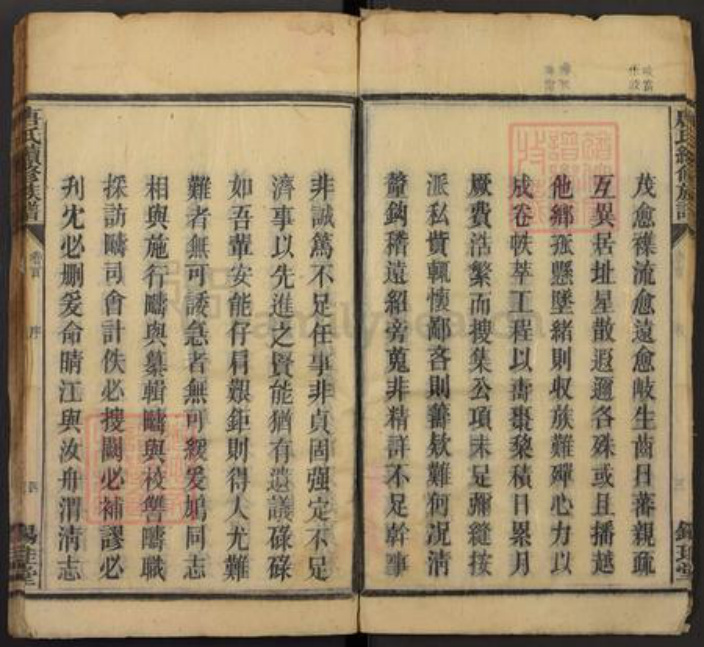 茂愈襍流愈遠愈岐生齒日蕃親疏
互異居址星散遐邇各殊或且播越
他鄉孤懸墜緒則收族難殫心力以
成卷帙萃工程以壽棗黎積日累月
厥費浩繁而搜集公項未足彌縫按
派私貲輒懷鄙吝則籌欵難何况清
釐鈎稽遠紹旁蒐非精詳不足幹事
非誠篤不足任事非貞固强定不足
濟事以先進之賢能猶有遺議碌碌
如吾輩安能仔肩艱鉅則得人尤難
難者無可諉急者無可緩爰鳩同志
相與施行疇與摹輯疇與校讐疇職
採訪疇司會計佚必搜闕必補謬必
刋冘必刪爰命晴江與汝舟渭清志
唐氏續修族譜
卷首
序
錫珪堂